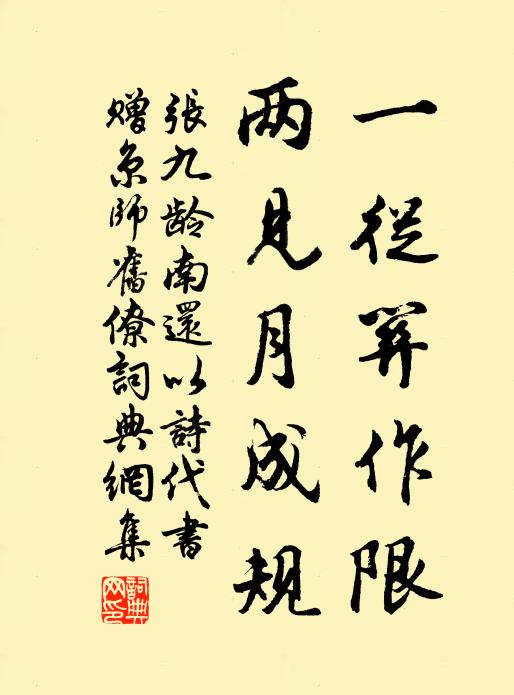 一從關作限
兩見月成規
張九齡南還以詩代書
贈京師舊僚詞典網集
詞典
网印